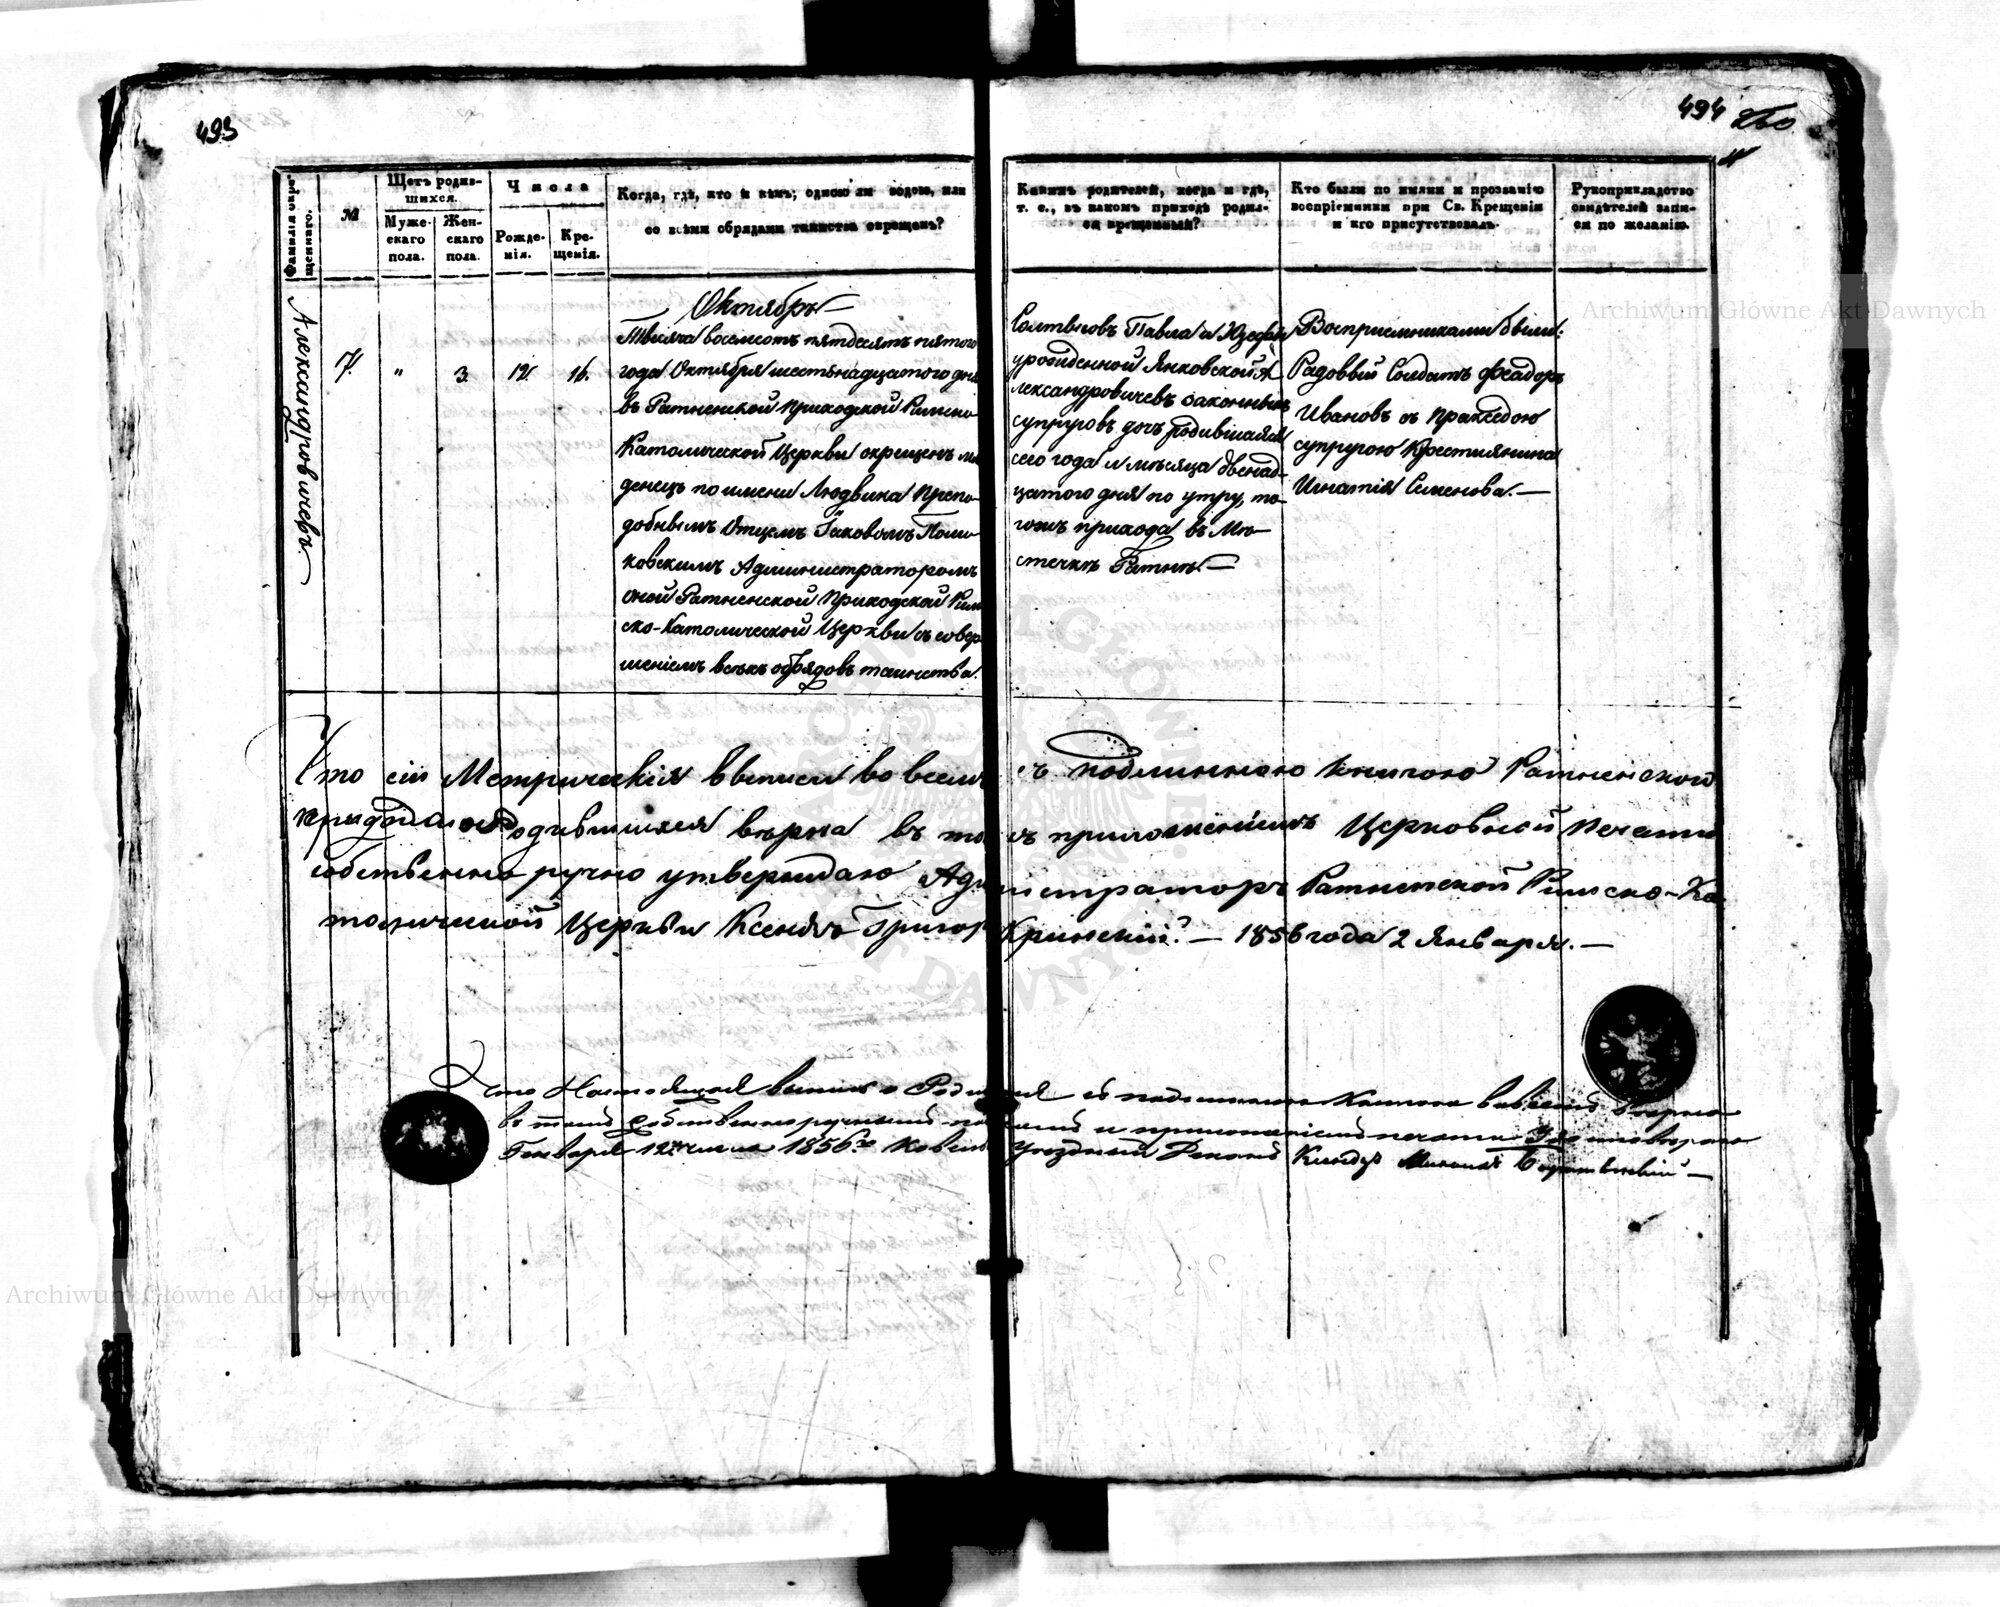 493
494
260
Фамилія окре-
щеннаго.
№
Щетъ родив-
шихся.
Муже-
скаго
пола.
Жен-
скаго
пола.
Числа
Рожде-
нія.
Кре-
щенія.
Когда, гдѣ, кто и кѣмъ; одною ли водою, или
со всѣми обрядами таинства окрещенъ?
Какихъ родителей, когда и гдѣ,
т. е., въ какомъ приходѣ родил-
ся крещенный?
Кто были по имени и прозванію
воспріемники при Св. Крещеніи
и кто присутствовалъ.
Рукоприкладство
свидѣтелей запи-
си по желанію.
Александровичевъ
7. " 3. 12. 16.
Октябрь
Тысяча восемсотъ пятдесятъ пятого
года Октября шестьнадцатого дня
въ Ратненской Приходской Римско
Католической Церкви окрещенъ мла
денецъ по имени Людвика Препо-
добнымъ Отцемъ Іаковомъ
Администраторомъ
оной Ратненской Приходской Рим
ско-Католической Церкви съ совер
шеніемъ всѣхъ обрядовъ таинства.
Павла и Юзефы
урожденной Янковской А
лександровичевъ законныхъ
супруговъ дочь родившаяся
сего года и мѣсяца двенад-
цатого дня по утру, то-
гожъ прихода въ Мѣ-
стечкѣ Ратнѣ.—
Воспріемниками были:
Радовый Солдатъ Феодоръ
Ивановъ съ Пракседою
супругою Крестиянина
Игнатія Семенова.—
Что сіи Метрическія Выписи во всемъ съ подлинною книгою Ратненской
родившихся вѣрна въ томъ съ приложеніемъ Церковной Печати
собственно ручно утверждаю Администраторъ Ратненской Римско-Ка
толической Церкви Ксендзъ Григор Кринскій.— 1856 года 2 Января.—
Что Настоящая выпись о съ подлинною Книгою во всемъ вѣрна
въ томъ собственноручнымъ и приложеніемъ печати
Генваря 12 числа 1856 го Уѣздный Деканъ Ксендзъ
Archiwum Główne Akt Dawnych
Archiwum Główne Akt Dawnych